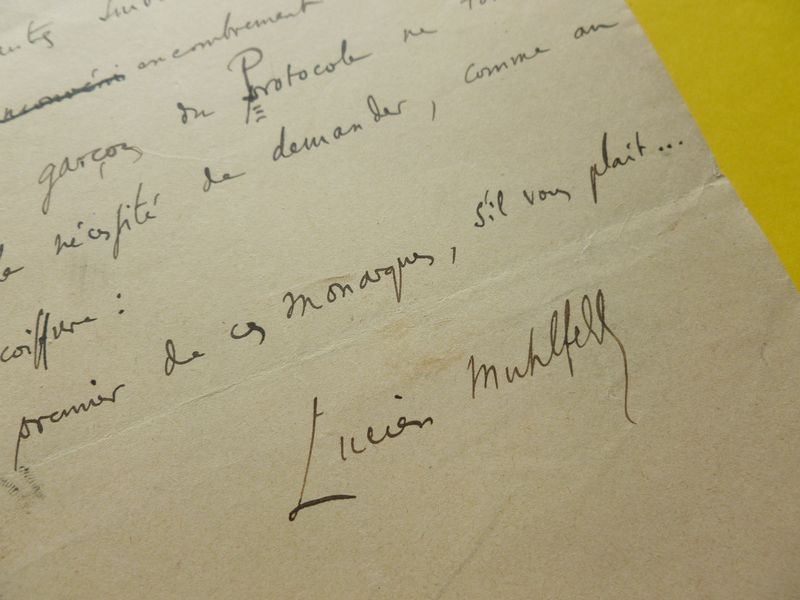 encombrement
garçon du Protocole ne
nécessité de demander, comme au
coiffure :
premier de ces monarques, s'il vous plait...
Lucien Muhlfeld